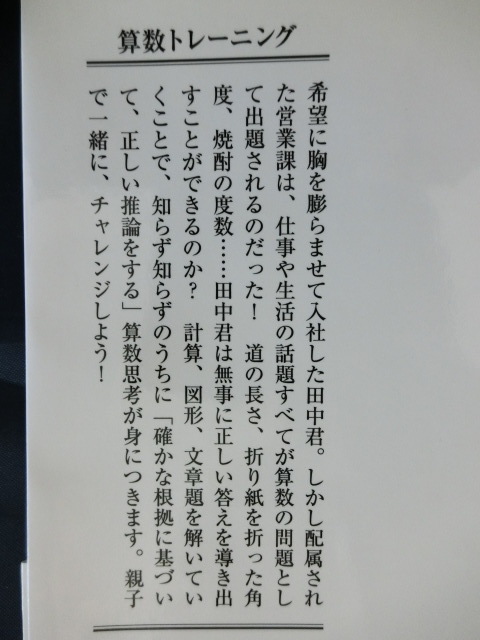 算数トレーニング
希望に胸を膨らませて入社した田中君。しかし配属され
た営業課は、仕事や生活の話題すべてが算数の問題とし
て出題されるのだった！　道の長さ、折り紙を折った角
度、焼酎の度数……田中君は無事に正しい答えを導き出
すことができるのか？　計算、図形、文章題を解いてい
くことで、知らず知らずのうちに「確かな根拠に基づい
て、正しい推論をする」算数思考が身につきます。親子
で一緒に、チャレンジしよう！